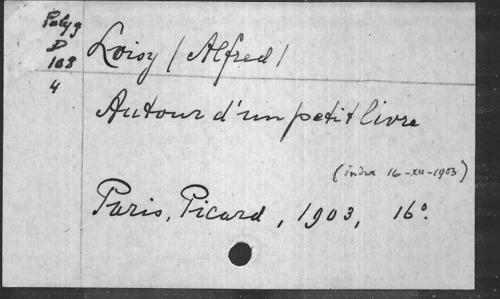 Polyg
D
108
4
Loisy (Alfred)
Autour d'un petit livre
(index 16-XII-1903)
Paris, Picard, 1903, 16°.